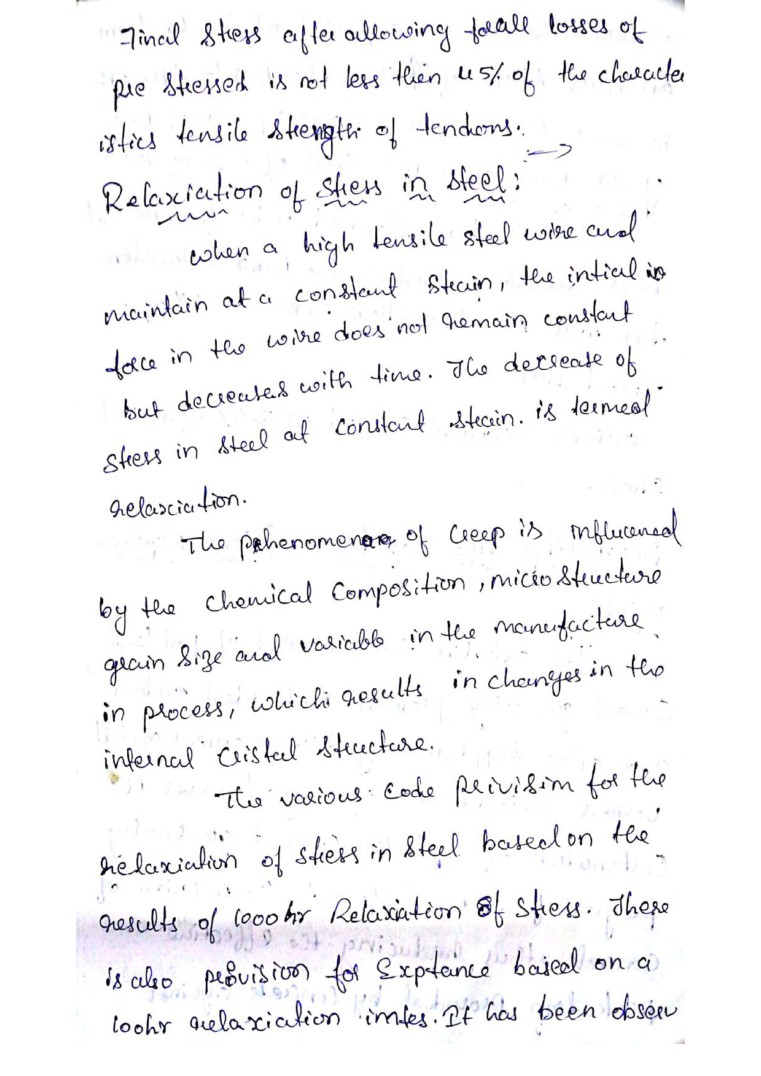 Final stress after allowing for all losses of
pre stressed is not less then 45% of the character
istics tensile strength of tendons.
Relaxciation of stress in steel: →
when a high tensile steel wire and
maintain at a constant strain, the intial
force in the wire does not remain constant
but decreases with time. The decrease of
stress in steel at constant strain. is termed
relaxciation.
The phenomena of creep is influenced
by the chemical composition, micro structure
grain size and variable in the manufacture
in process, which results in changes in the
internal cristal structure.
The various code privisim for the
relaxciation of stress in steel based on the
results of 1000 hr Relaxiation of stress. There
is also provision for Exptance based on a
100hr relaxciation . It has been observ